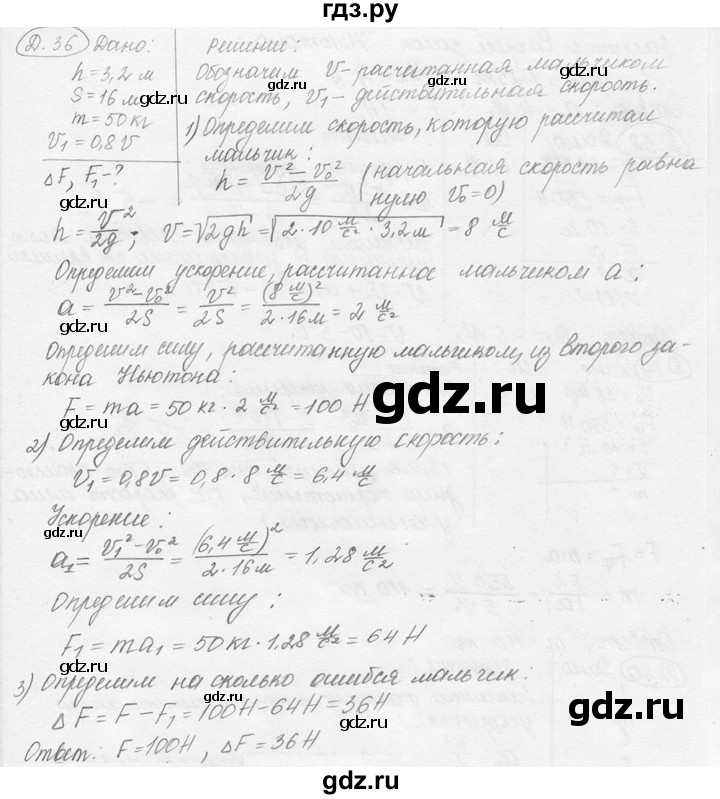 гдз.ру
Д.36 Дано: Решение:
h = 3,2 м Обозначим V - расчитанная мальчиком
S = 16 м скорость, V₁ - действительная скорость.
m = 50 кг 1) Определим скорость, которую рассчитал
V₁ = 0,8 V мальчик:
ΔF, F₁ - ? h = (V² - V₀²)/2g (начальная скорость равна нулю V₀ = 0)
h = V²/2g ; V = √2gh = √2 · 10 м/с² · 3,2 м = 8 м/с
Определим ускорение, рассчитанное мальчиком a:
a = (V² - V₀²)/2S = V²/2S = (8 м/с)²/(2 · 16 м) = 2 м/с²
Определим силу, рассчитанную мальчиком, из второго за-
кона Ньютона:
F = ma = 50 кг · 2 м/с² = 100 Н
2) Определим действительную скорость:
V₁ = 0,8 V = 0,8 · 8 м/с = 6,4 м/с
Ускорение:
a₁ = (V₁² - V₀²)/2S = (6,4 м/с)²/(2 · 16 м) = 1,28 м/с²
Определим силу:
F₁ = ma₁ = 50 кг · 1,28 м/с² = 64 Н
3) Определим на сколько ошибся мальчик:
ΔF = F - F₁ = 100 Н - 64 Н = 36 Н
Ответ: F = 100 Н, ΔF = 36 Н
gdz.ru
gdz.ru
gdz.ru
gdz.ru
gdz.ru
gdz.ru
gdz.ru
gdz.ru
gdz.ru
gdz.ru
gdz.ru
gdz.ru
gdz.ru
gdz.ru